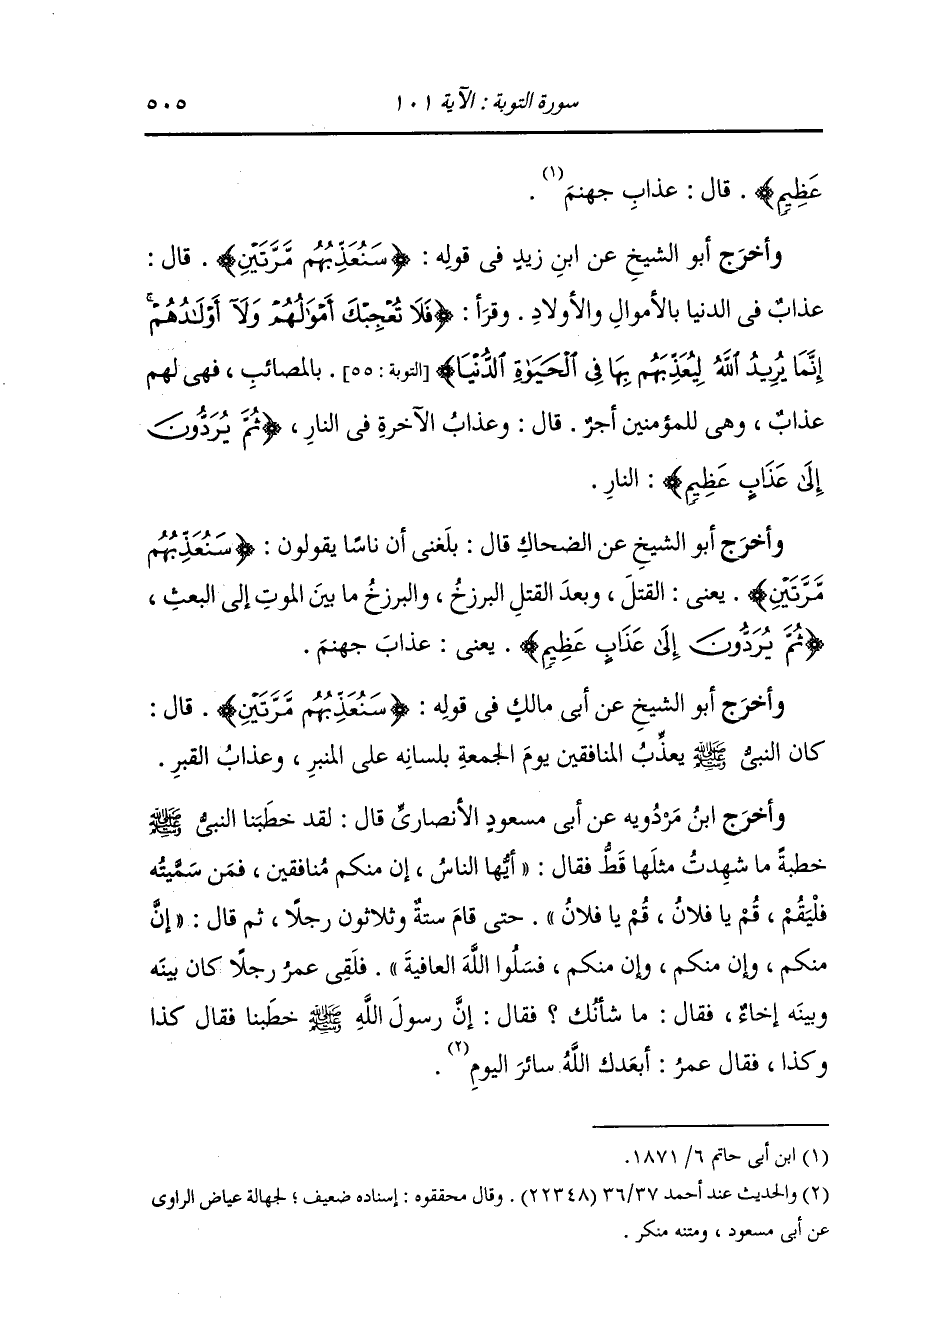 سورة التوبة : الآية ١٠١ ٥٠٥
عَظِيمٍ﴾ . قال : عذابِ جهنمَ(١) .
وأخرَج أبو الشيخِ عن ابنِ زيدٍ فى قولِه : ﴿سَنُعَذِّبُهُم مَّرَّتَيْنِ﴾ . قال :
عذابٌ فى الدنيا بالأموالِ والأولادِ . وقرَأ : ﴿فَلَا تُعْجِبْكَ أَمْوَٰلُهُمْ وَلَآ أَوْلَـٰدُهُمْۚ
إِنَّمَا يُرِيدُ ٱللَّهُ لِيُعَذِّبَهُم بِهَا فِى ٱلْحَيَوٰةِ ٱلدُّنْيَا﴾ [التوبة : ٥٥] . بالمصائبِ ، فهى لهم
عذابٌ ، وهى للمؤمنين أجرٌ . قال : وعذابُ الآخرةِ فى النارِ ، ﴿ثُمَّ يُرَدُّونَ
إِلَىٰ عَذَابٍ عَظِيمٍ﴾ : النارِ .
وأخرَج أبو الشيخِ عن الضحاكِ قال : بلَغنى أن ناسًا يقولون : ﴿سَنُعَذِّبُهُم
مَّرَّتَيْنِ﴾ . يعنى : القتلَ ، وبعدَ القتلِ البرزخُ ، والبرزخُ ما بينَ الموتِ إلى البعثِ ،
﴿ثُمَّ يُرَدُّونَ إِلَىٰ عَذَابٍ عَظِيمٍ﴾ . يعنى : عذابَ جهنمَ .
وأخرَج أبو الشيخِ عن أبى مالكٍ فى قولِه : ﴿سَنُعَذِّبُهُم مَّرَّتَيْنِ﴾ . قال :
كان النبىُّ ﷺ يعذِّبُ المنافقين يومَ الجمعةِ بلسانِه على المنبرِ ، وعذابُ القبرِ .
وأخرَج ابنُ مَرْدُويه عن أبى مسعودٍ الأنصارىِّ قال : لقد خطَبَنا النبىُّ ﷺ
خطبةً ما شهِدتُ مثلَها قَطُّ فقال : « أيُّها الناسُ ، إن منكم مُنافقين ، فمَن سَمَّيتُه
فلْيَقُمْ ، قُمْ يا فلانُ ، قُمْ يا فلانُ » . حتى قامَ ستةٌ وثلاثون رجلًا ، ثم قال : « إنَّ
منكم ، وإن منكم ، وإن منكم ، فسَلُوا اللَّهَ العافيةَ » . فلَقِى عمرُ رجلًا كان بينَه
وبينَه إخاءٌ ، فقال : ما شأنُك ؟ فقال : إنَّ رسولَ اللَّهِ ﷺ خطَبنا فقال كذا
وكذا ، فقال عمرُ : أبعَدك اللَّهُ سائرَ اليومِ(٢) .
(١) ابن أبى حاتم ٦/ ١٨٧١.
(٢) والحديث عند أحمد ٣٦/٣٧ (٢٢٣٤٨) . وقال محققوه : إسناده ضعيف ؛ لجهالة عياض الراوى
عن أبى مسعود ، ومتنه منكر .